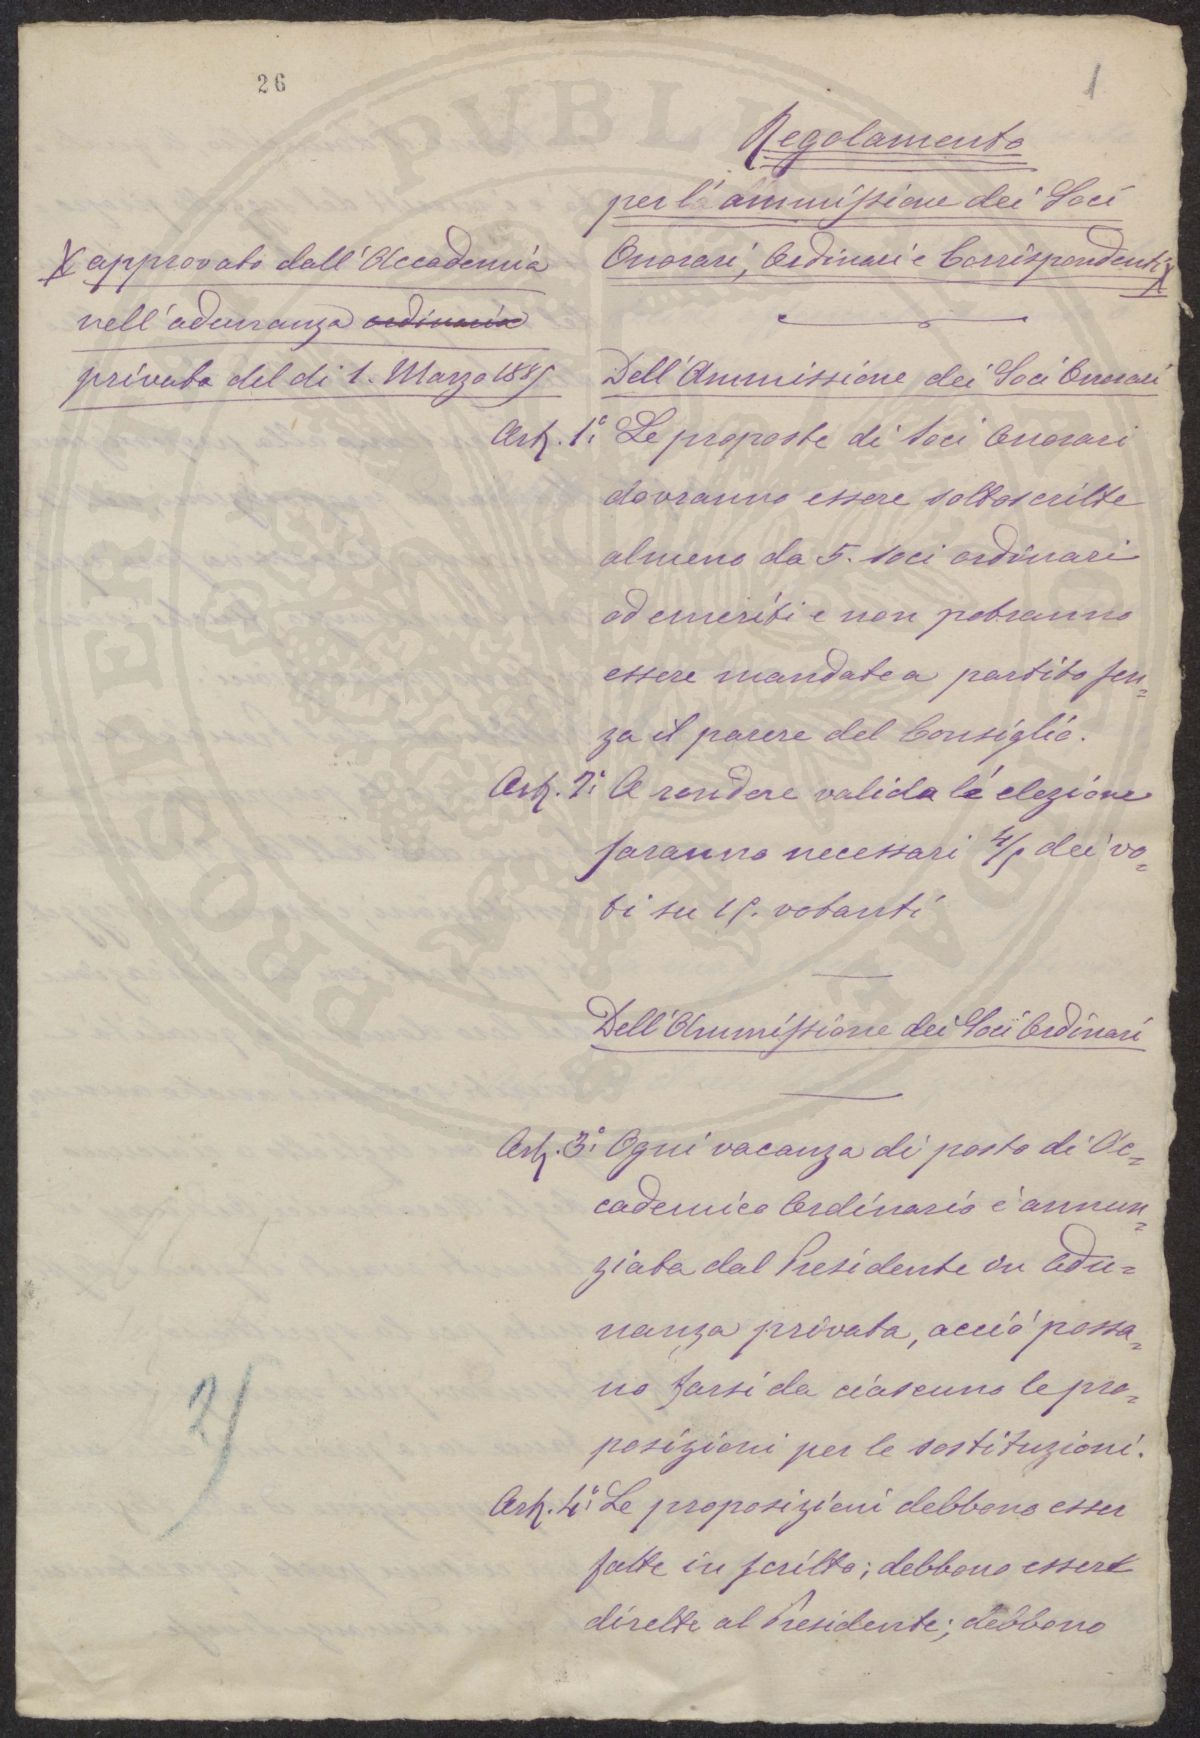 26
1
Regolamento
per l'ammissione dei Soci
Onorari, Ordinari e Corrispondenti X
X approvato dall'Accademia
nell'adunanza ordinaria
privata del di 1. Marzo 1885
Dell'Ammissione dei Soci Onorari
Art. 1.° Le proposte di Soci Onorari
dovranno essere sottoscritte
almeno da 5. soci ordinari
od emeriti e non potranno
essere mandate a partito sen=
za il parere del Consiglio.
Art. 2.° A rendere valida l'elezione
saranno necessari 4/5 dei vo=
ti su 15. votanti
Dell'Ammissione dei Soci Ordinari
Art. 3.° Ogni vacanza di posto di Ac=
cademico Ordinario è annun=
ziata dal Presidente in Adu=
nanza privata, acciò possa=
no farsi da ciascuno le pro=
posizioni per le sostituzioni.
Art. 4.° Le proposizioni debbono esser
fatte in scritto; debbono essere
dirette al Presidente; debbono
2)
PROSPERITATI PUBLICAE